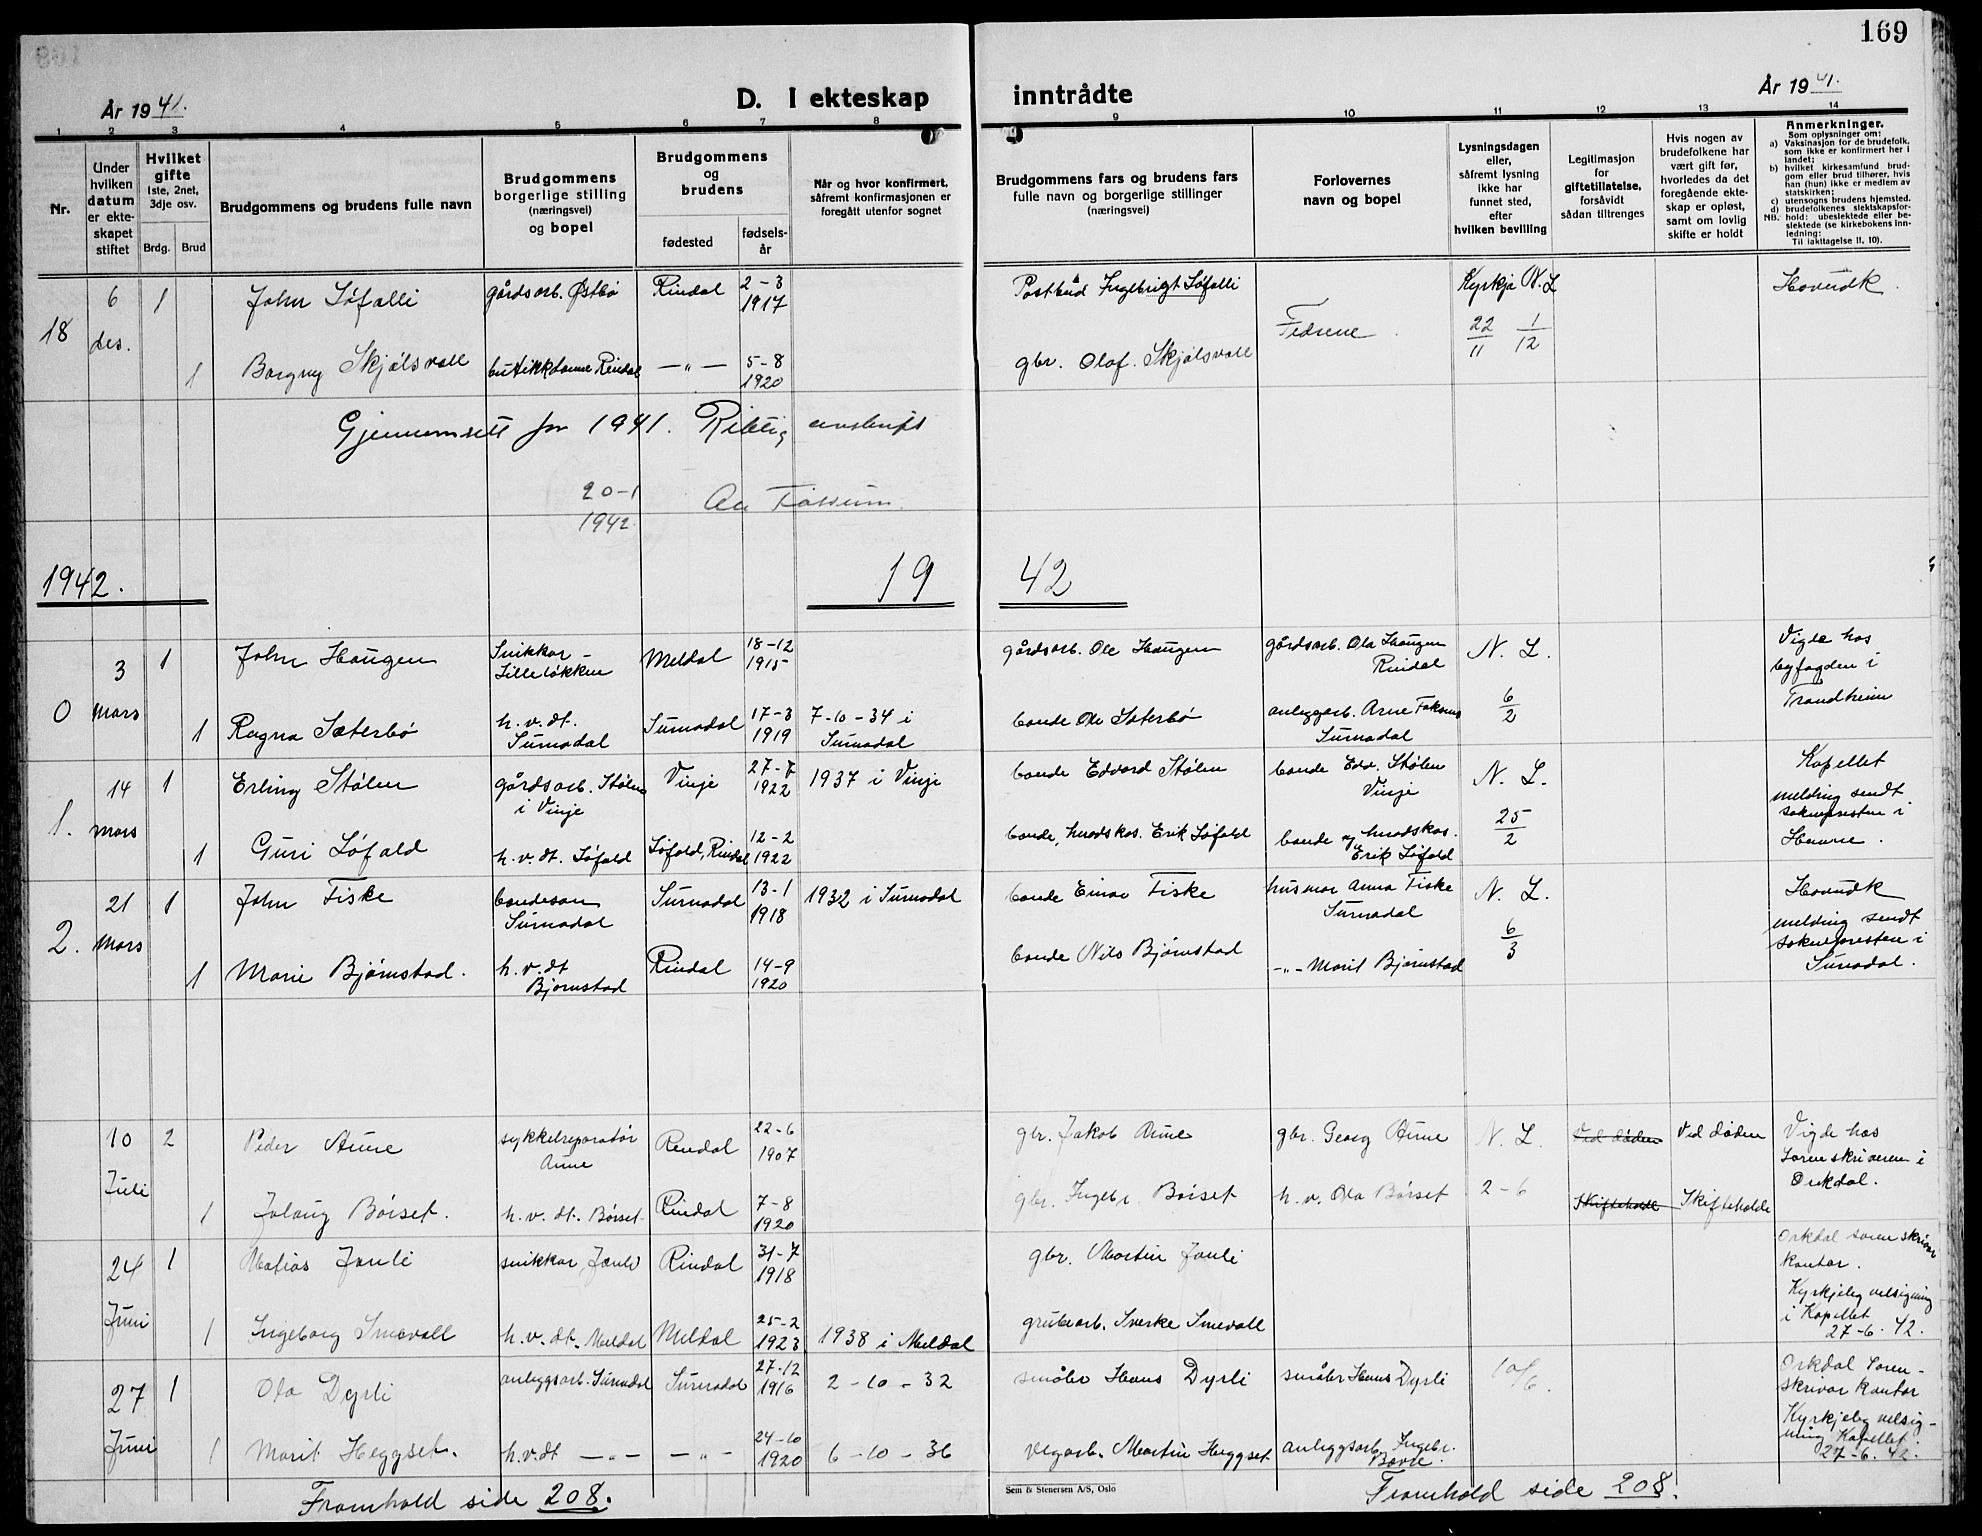 169
År 1941.
D. I ekteskap inntrådte
År 1941.
1 2 3 4 5 6 7 8 9 10 11 12 13 14
Nr.
Under hvilken datum er ekteskapet stiftet
Hvilket gifte
1ste, 2net, 3dje osv.
Brdg. Brud
Brudgommens og brudens fulle navn
Brudgommens borgerlige stilling (næringsvei) og bopel
Brudgommens og brudens
fødested
fødselsår
Når og hvor konfirmert, såfremt konfirmasjonen er foregått utenfor sognet
Brudgommens fars og brudens fars fulle navn og borgerlige stillinger (næringsvei)
Forlovernes navn og bopel
Lysningsdagen eller, såfremt lysning ikke har funnet sted, efter hvilken bevilling
Legitimasjon for giftetillatelse, forsåvidt sådan tiltrenges
Hvis nogen av brudefolkene har vært gift før, hvorledes da det foregående ekteskap er opløst, samt om lovlig skifte er holdt
Anmerkninger.
Som oplysninger om:
a) Vaksinasjon for de brudefolk, som ikke er konfirmert her i landet;
b) hvilket kirkesamfund brudgom eller brud tilhører, hvis han (hun) ikke er medlem av statskirken;
c) utensogns brudens hjemsted.
d) brudefolkenes slektskapsforhold: ubeslektede eller beslektede (se kirkebokens innledning:
NB.
Til iakttagelse II, 10).
18 6 des. 1 John Løfalli gårdsarb. Østbø Rindal 2-3 1917 Postbud Ingebrigt Løfalli Fedrene Kyrkja N. L 22/11 1/12 Hovudk.
1 Borgny Skjølsvoll butikkdame Rindal —"— 5-8 1920 gbr. Olaf. Skjølsvoll
Gjennomsett for 1941. Riktig avskrift
20-1 1942
Aa Fossum.
1942.
19 42
0 3 mars 1 John Haugen Snikkar - Lilleløkken Meldal 18-12 1915 gårdsarb. Ole Haugen gårdsarb. Ola Haugen Rindal N. L. 6/2 Vigde hos byfogden i Trondheim
1 Ragna Sæterbø h. v. dt. Surnadal Surnadal 17-3 1919 7-10-34 i Surnadal bonde Ole Sæterbø anleggarb. Arne Surnadal
1. 14 mars 1 Erling Stølen gårdsarb. Stølen i Vinje Vinje 27-7 1922 1937 i Vinje bonde Edvard Stølen bonde Edv. Stølen Vinje N. L. 25/2 Kapellet melding sendt sokneprestens i Hemne.
1 Guri Løfald h. v. dt. Løfald Løfald, Rindal 12-2 1922 bonde, Erik Løfald bonde og Erik Løfald
2. 21 mars 1 John Fiske bondeson Surnadal Surnadal 13-1 1918 1932 i Surnadal bonde Einar Fiske husmor Anna Fiske Surnadal N. L. 6/3 Hovudk melding sendt soknepresten i Surnadal.
1 Marie Bjørnstad. h. v. dt Bjørnstad Rindal 14-9 1920 bonde Nils Bjørnstad —"— Marit Bjørnstad
10 Juli 2 Peder Aune sykkelreparatør Aune Rindal 22-6 1907 gbr. Jakob Aune gbr. Georg Aune N. L. 2-6 Ved døden Ved døden Vigde hos Sorenskriveren i Orkdal.
1 Solaug Børset. h. v. dt. Børset Rindal 7-8 1920 gbr. Ingebr. Børset h. v. Ola Børset Skifteholde Skifteholde
24 Juni 1 Matias Jønli snikkar, Jønli Rindal 31-7 1918 gbr. Martin Jønli Orkdal sorenskrivar kontor.
1 Ingeborg Smevoll h. v. dt. Meldal Meldal 25-2 1923 1938 i Meldal grubearb. Sverke Smevoll Kyrkjeleg velsigning i Kapellet 27-6.42.
27 Juni 1 Ola Dyrli anleggsarb. Surnadal Surnadal 27-12 1916 2-10-32 småbr Hans Dyrli småbr Hans Dyrli 10/6. Orkdal Soren-skrivar kontor
1 Marit Heggset. h. v. dt —"— —"— 24-10 1920 6-10-36 vegarb. Martin Heggset anleggsarb. Ingebr. Kyrkjeleg velsig-ning Kapellet. 27-6.42.
Framhald side 208.
Sem & Stenersen A/S, Oslo
Framhald side 208.